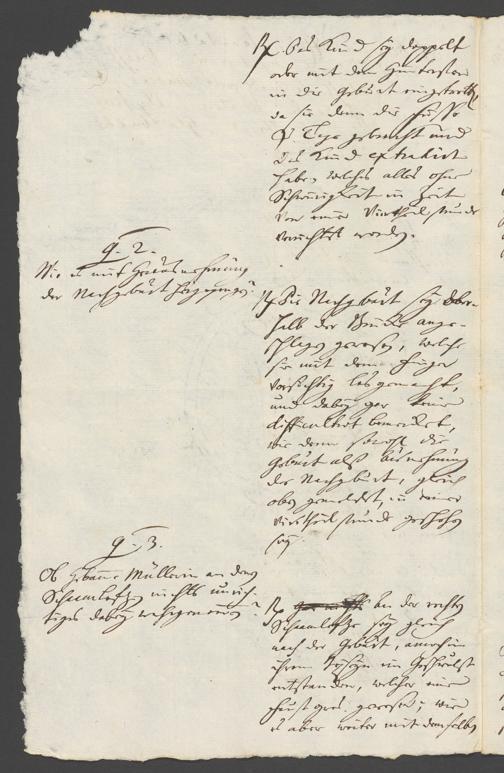 R. das Kind sey doppelt
oder mit dem Hintersten
in die Geburt eingetretten
da sie denn die Füsse
gebracht und
das Kind extrahirt
habe, welches alles ohne
Schwürigkeit in Zeit
von einer Viertheil stunde
verrichtet worden.
q. 2.
Wie es mit Herausnehmung
der Nachgeburt hergegangen?
R. Die Nachgeburt sey Ober-
halb der Mutter ange-
gewesen, welche
sie mit dem Finger
vorsichtig losgemacht,
und dabey gar keine
difficultaet bemercket,
wie denn sowohl die
Geburt alß Ausnehmung
der Nachgeburt, gleich
oben gemeldet, in einer
Viertheil stunde geschehen
sey.
q. 3.
Ob Hebamme Müllerin an denen
Schaamlefzen nichts unrich-
tiges dabey wahrgenommen?
R. An der rechten
Schaamlefze sey gleich
nach der Geburt, annoch in
ihrem Beyseyn ein Geschwulst
entstanden, welcher einer
Faust gros gewesen; wie
es aber weiter mit demselben